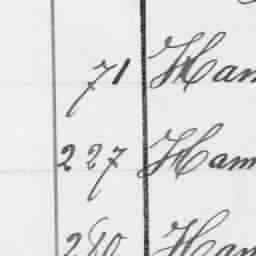 71 Ham
227 Ham
280 Ham